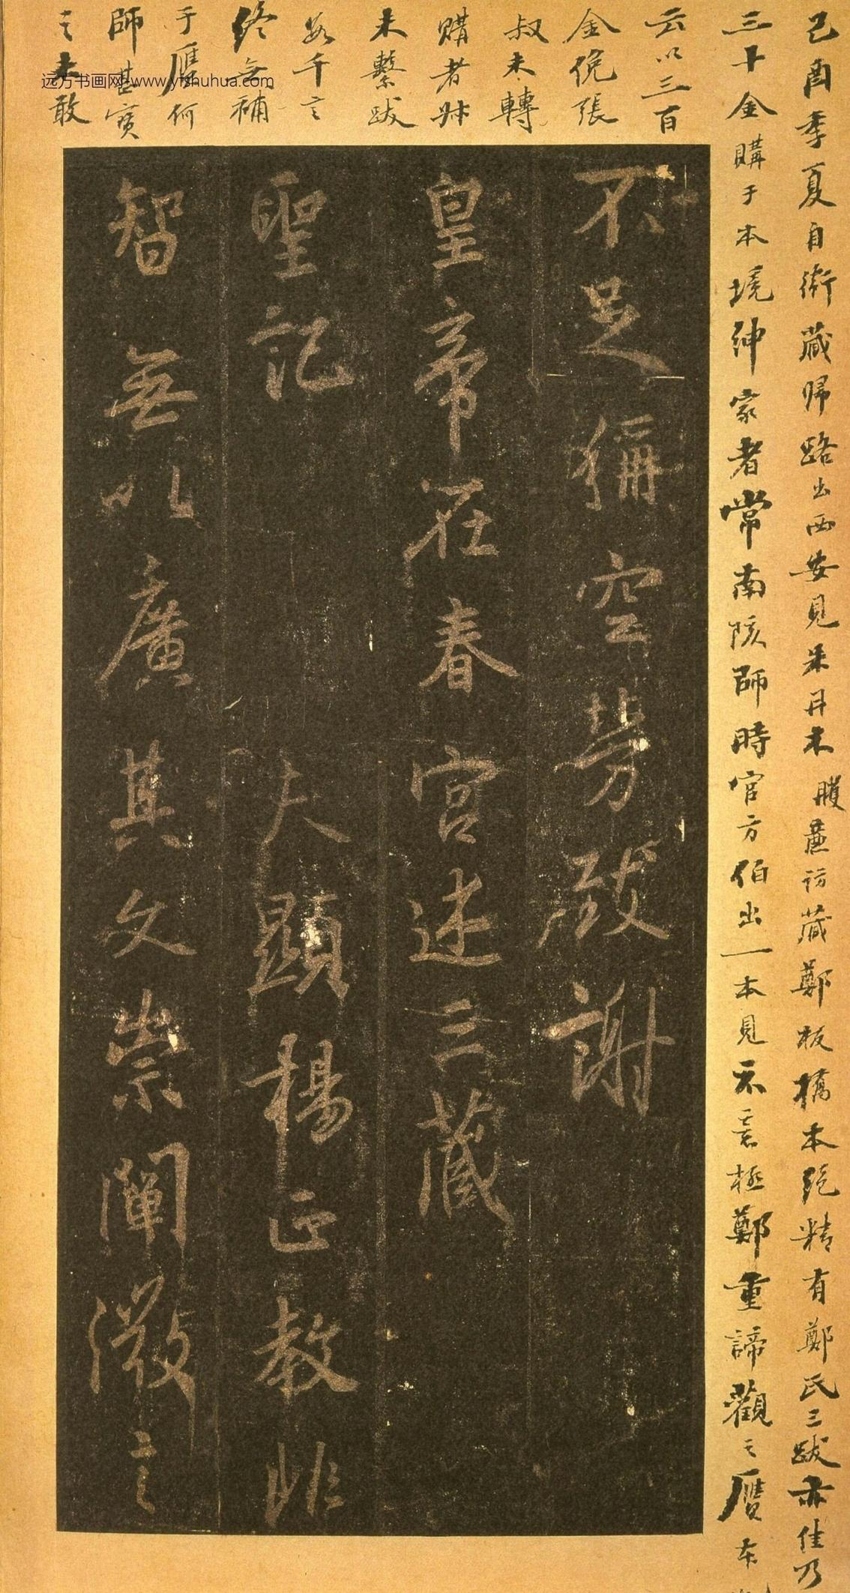 己酉季夏自衛藏歸路出西安見朱丹木賸蘧訪藏鄭板橋本絕精有鄭氏三跋亦佳乃
三十金購于本境紳家者常南陔師時官方伯出一本見示喜極鄭重諦觀之贗本
云以三百
金從張
叔未轉
購者叔
未繫跋
數千言
終無補
于贗何
師甚寶
之未敢
不足稱空勞致謝
皇帝在春宮述三藏
聖記
夫顯揚正教非
智無以廣其文崇闡微言
远方书画网 www.yfshuhua.com